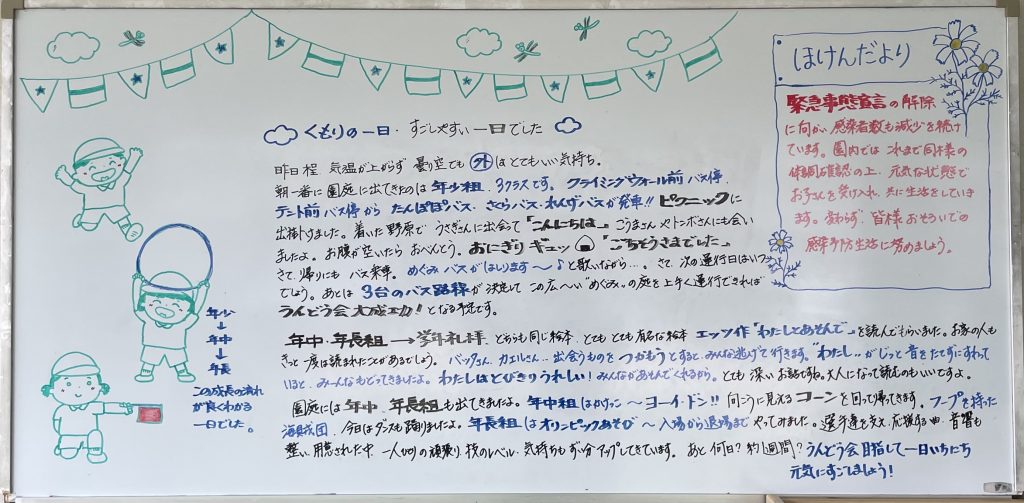 くもりの一日・すごしやすい一日でした
昨日程 気温が上がらず 曇り空でも 外 はとてもいい気持ち。
朝一番に園庭に出てきたのは 年少組、3クラスです。クライミングウォール前 バス停、
テント前 バス停から たんぽぽバス・さくらバス・れんげバスが発車!! ピクニックに
出掛けました。着いた野原で うさぎさんに出会って「こんにちは」こうまさんやトンボさんにも会い
ましたよ。お腹が空いたら おべんとう。おにぎりギュッ「ごちそうさまでした」
さて、帰りにも バス発車。めぐみバスがはしります〜♪と歌いながら…。さて、次の運行日はいつ
でしょう。あとは 3台のバス路線が 決定して この広〜い"めぐみ"の庭を上手く運行できれば
うんどう会 大成功! となる予定です。
年中、年長組→学年礼拝 どちらも同じ絵本 とても とても有名な絵本 エッツ作"わたしとあそんで"を読んでもらいました。お家の人も
きっと一度は読まれたことがあるでしょう。バッタさん、カエルさん…出会うものを つかもうとすると、みんな逃げて行きます。"わたし"がじっと音をたてずにすわって
いると、みーんなもどってきましたよ。わたしはとびきりうれしい!みんながあそんでくれるから。とても 深い お話ですね。大人になって読むのもいいですよ。
園庭には 年中、年長組も出てきましたよ。年中組はかけっこ〜ヨーイ・ドン!! 向こうに見える コーンを回って帰ってきます。フープを持った
海賊団、今日はダンスも踊りましたよ。年長組はオリンピックあそび〜入場から退場まで やってみました。選手達を支え、応援する曲、音響も
整い 用意された中 一人ひとりの頑張り、技のレベル、気持ちも ずい分アップしてきています。あと 何日? 約1週間? うんどう会目指して一日いちにち
元気にすごしましょう!
年少
↓
年中
↓
年長
この成長の流れ
が良くわかる
一日でした。
ほけんだより
緊急事態宣言の解除
に向かい 感染者数も減少を続け
ています。園内では これまで同様の
体調確認の上、元気な状態で
お子さんを受け入れ、共に生活をしていき
ます。変わらず 皆様おそろいでの
感染予防生活に努めましょう。